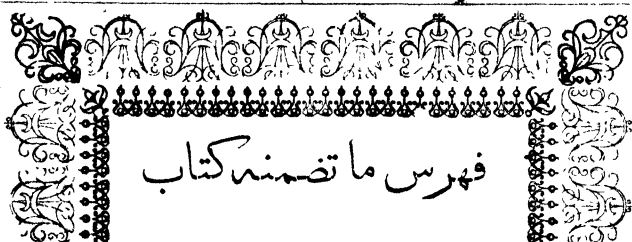 فهرس ما تضمنه كتاب